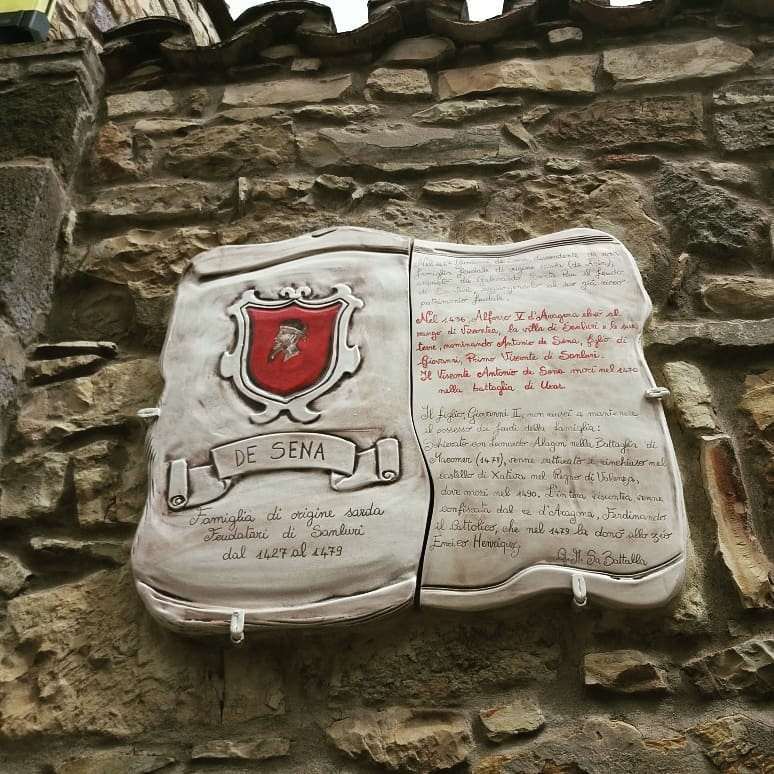 DE SENA
Famiglia di origine sarda
Feudatari di Sanluri
dal 1427 al 1479
famiglia feudale di origine sarda (de Sena),
il feudo
di al suo già ricco
patrimonio feudale.
Nel 1436, Alfonso V d'Aragona elevò al
rango di Viscontea, la villa di Sanluri e le sue
terre, nominando Antonio de Sena, figlio di
Giovanni, Primo Visconte di Sanluri.
Il Visconte Antonio de Sena morì nel 1470
nella battaglia di Uras.
Il figlio, Giovanni II, non riuscì a mantenere
il possesso dei feudi della famiglia:
Schierato con Leonardo Alagon nella Battaglia di
Macomer (1478), venne catturato e rinchiuso nel
castello di Xativa nel Regno di Valenza,
dove morì nel 1490. L'intera viscontea venne
confiscata dal re d'Aragona, Ferdinando
il Cattolico, che nel 1479 la donò allo zio
Enrico Henriquez.
Sa Battalla